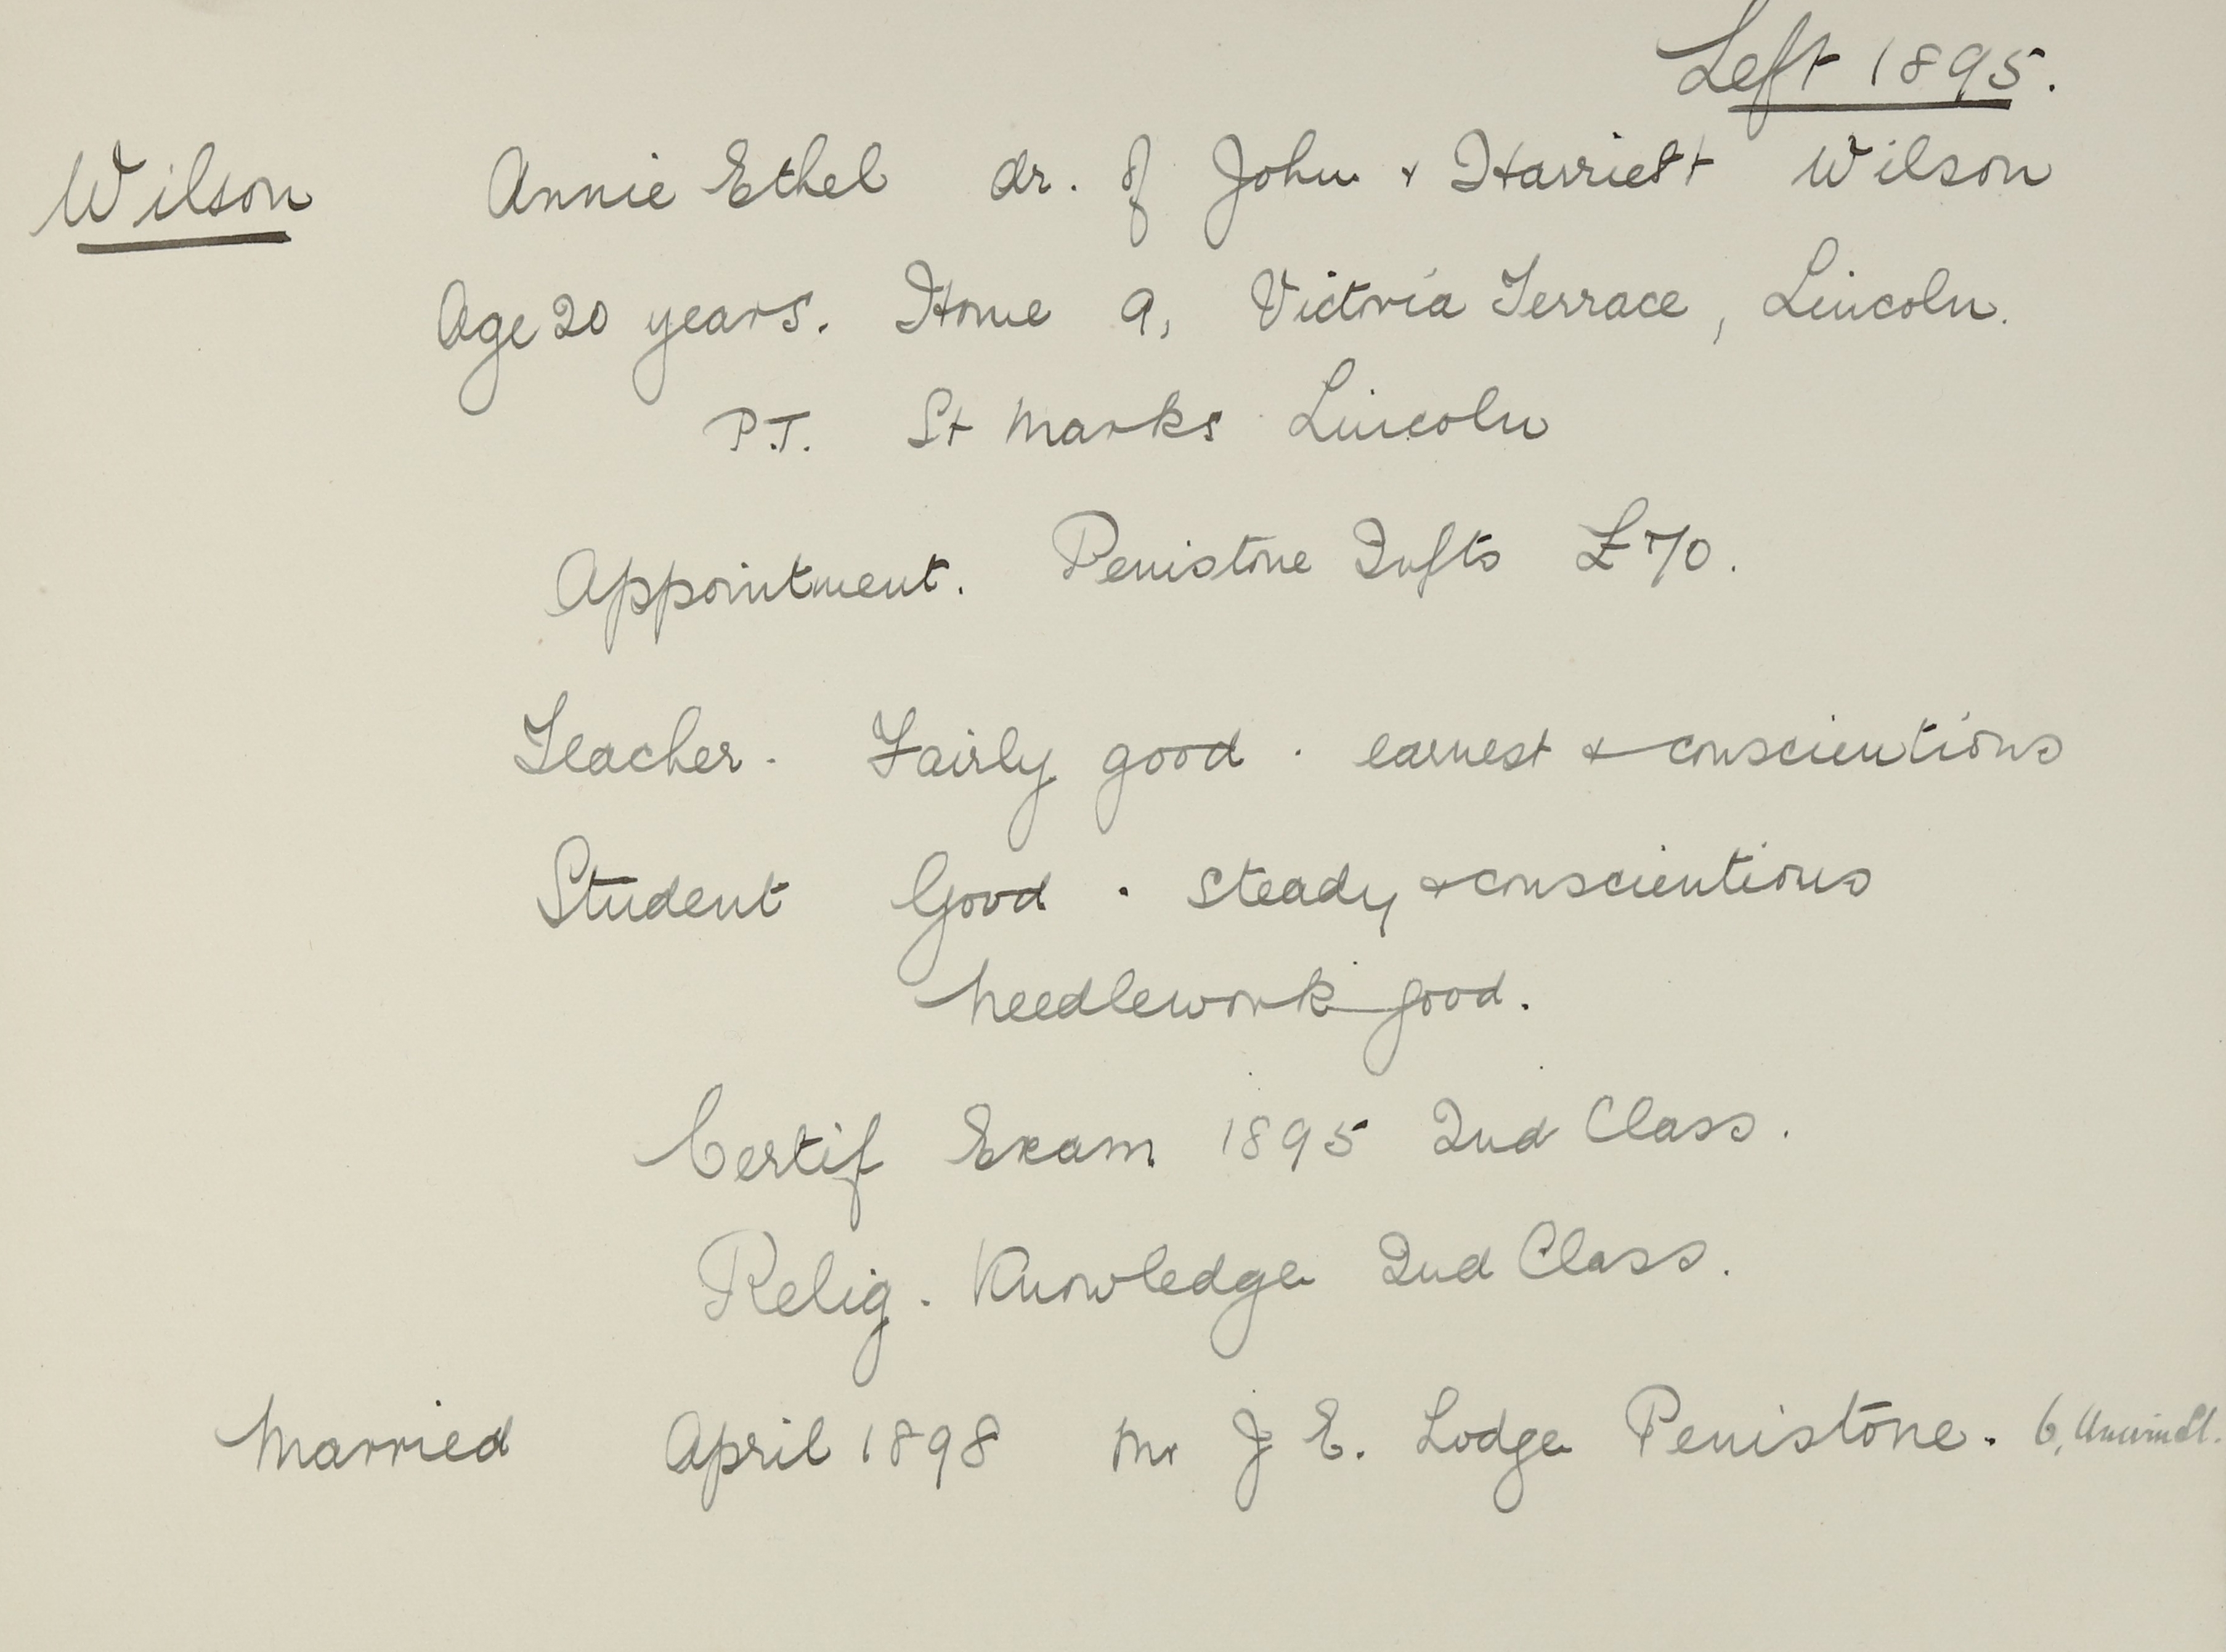 Left 1895.
Wilson Annie Ethel dr. of John & Harriett Wilson
Age 20 years. Home 9, Victoria Terrace, Lincoln.
P.T. St Marks Lincoln
Appointment. Penistone Infts £70.
Teacher. Fairly good. earnest & conscientious
Student Good. steady & conscientious
Needlework good.
Certif Exam 1895 2nd Class.
Relig. Knowledge 2nd Class.
Married April 1898 Mr J E. Lodge Penistone. 6,